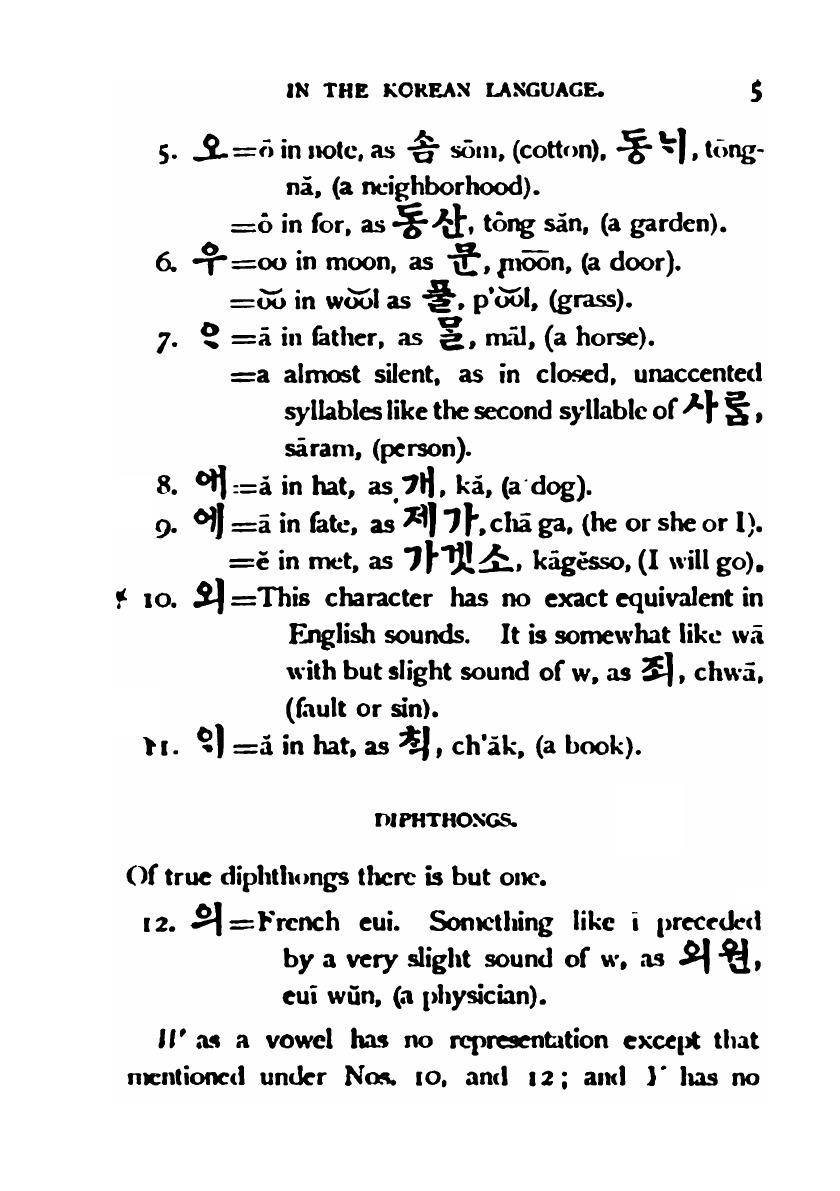 IN THE KOREAN LANGUAGE. 5
5. 오=ō in note, as 솜 sōm, (cotton), 동ᄂᆡ, tōng-
nă, (a neighborhood).
=ô in for, as 동산, tông săn, (a garden).
6. 우=oo in moon, as 문, mo͞on, (a door).
=o͝o in wo͝ol as 풀, p'o͝ol, (grass).
7. ᄋᆞ=ä in father, as ᄆᆞᆯ, mäl, (a horse).
=a almost silent, as in closed, unaccented
syllables like the second syllable of 사ᄅᆞᆷ,
säram, (person).
8. 애=ă in hat, as 개, kă, (a dog).
9. 에=ā in fate, as 제가, chā ga, (he or she or I).
=ĕ in met, as 가겟소, kāgĕsso, (I will go).
10. 외=This character has no exact equivalent in
English sounds. It is somewhat like wā
with but slight sound of w, as 죄, chwā,
(fault or sin).
11. ᄋᆡ=ă in hat, as ᄎᆡᆨ, ch'ăk, (a book).
DIPHTHONGS.
Of true diphthongs there is but one.
12. 의=French eui. Something like ī preceded
by a very slight sound of w, as 의원,
euī wŭn, (a physician).
W as a vowel has no representation except that
mentioned under Nos. 10, and 12; and Y has no